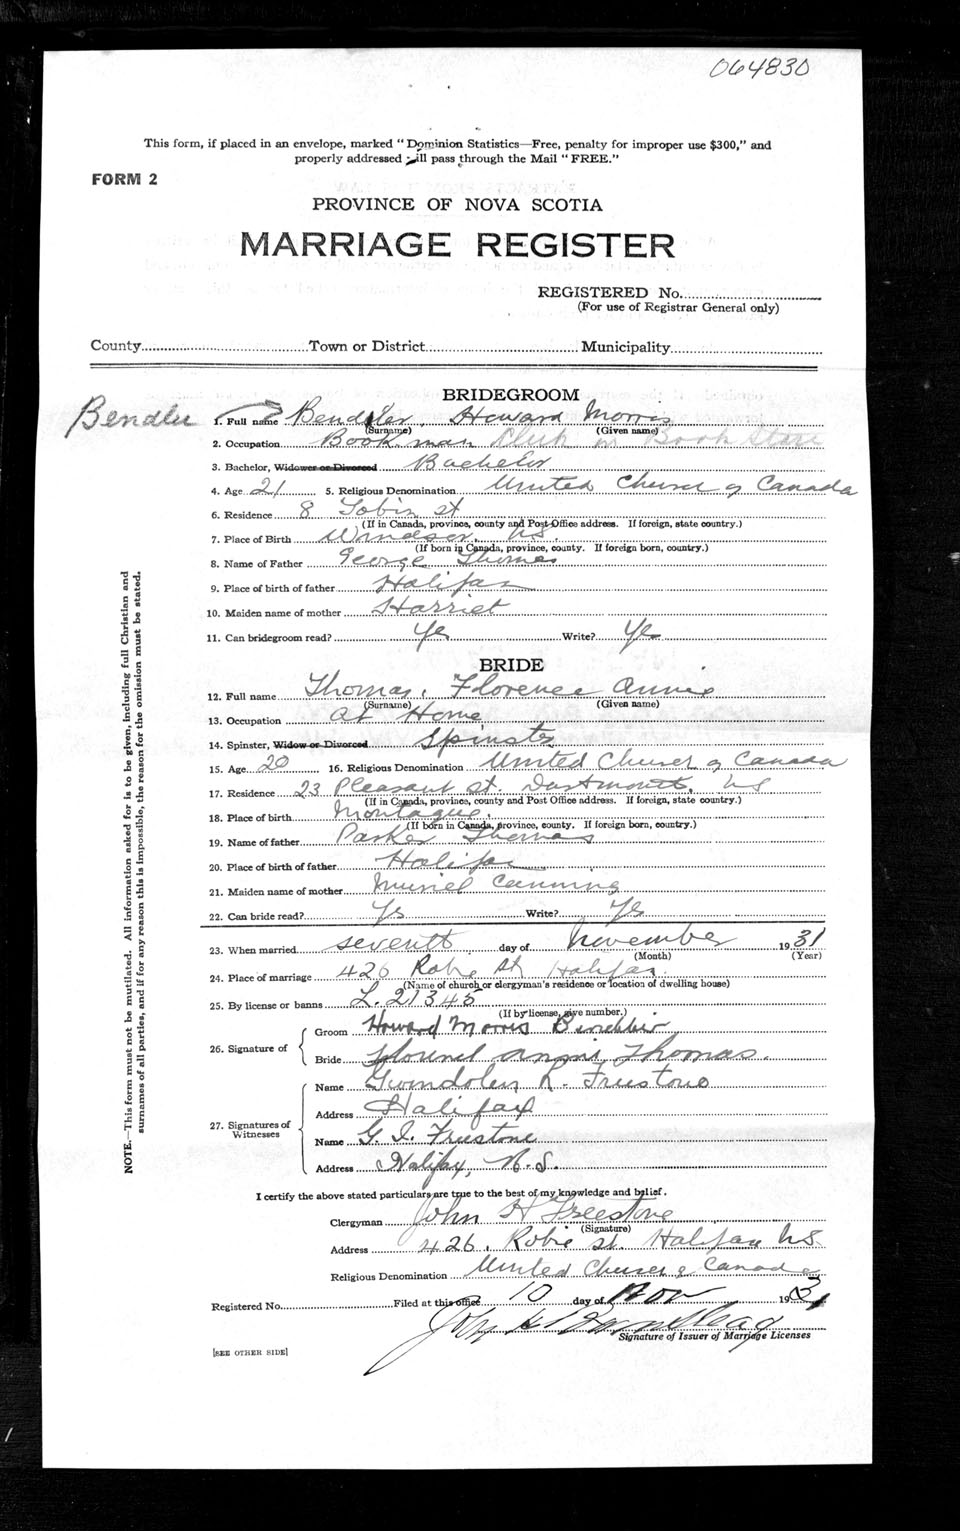 064830
This form, if placed in an envelope, marked "Dominion Statistics—Free, penalty for improper use $300," and
properly addressed will pass through the Mail "FREE."
FORM 2
PROVINCE OF NOVA SCOTIA
MARRIAGE REGISTER
REGISTERED No.
(For use of Registrar General only)
County Town or District Municipality
BRIDEGROOM
1. Full name Howard Morris
(Surname) (Given name)
2. Occupation Book man Clerk in Book Store
3. Bachelor, Widower or Divorced Bachelor
4. Age 21 5. Religious Denomination United Church of Canada
6. Residence 8 Tobin st
(If in Canada, province, county and Post Office address. If foreign, state country.)
7. Place of Birth Windsor, NS.
(If born in Canada, province, county. If foreign born, country.)
8. Name of Father George Thomas
9. Place of birth of father Halifax
10. Maiden name of mother Harriet
11. Can bridegroom read? Yes Write? Yes
BRIDE
12. Full name Thomas, Florence Annie
(Surname) (Given name)
13. Occupation at Home
14. Spinster, Widow or Divorced Spinster
15. Age 20 16. Religious Denomination United Church of Canada
17. Residence 23 Pleasant st. Dartmouth, NS
(If in Canada, province, county and Post Office address. If foreign, state country.)
18. Place of birth Montague,
(If born in Canada, province, county. If foreign born, country.)
19. Name of father Parker Thomas
20. Place of birth of father Halifax
21. Maiden name of mother Muriel Canning
22. Can bride read? Ys Write? Ys
23. When married seventh day of November 1931
(Month) (Year)
24. Place of marriage 426 Robie St Halifax.
(Name of church or clergyman's residence or location of dwelling house)
25. By license or banns L. 21345
(If by license, give number.)
26. Signature of
Groom Howard Morris
Bride Florence Annie Thomas.
27. Signatures of Witnesses
Name Gwendolen R. Freestone
Address Halifax
Name G. I. Freestone
Address Halifax, N.S.
I certify the above stated particulars are true to the best of my knowledge and belief.
Clergyman John H Freestone
(Signature)
Address 426, Robie St. Halifax NS
Religious Denomination United Church of Canada
Registered No. Filed at this office 10 day of Nov 1931
John H
Signature of Issuer of Marriage Licenses
[SEE OTHER SIDE]
NOTE.—This form must not be mutilated. All information asked for is to be given, including full Christian and
surnames of all parties, and if for any reason this is impossible, the reason for the omission must be stated.